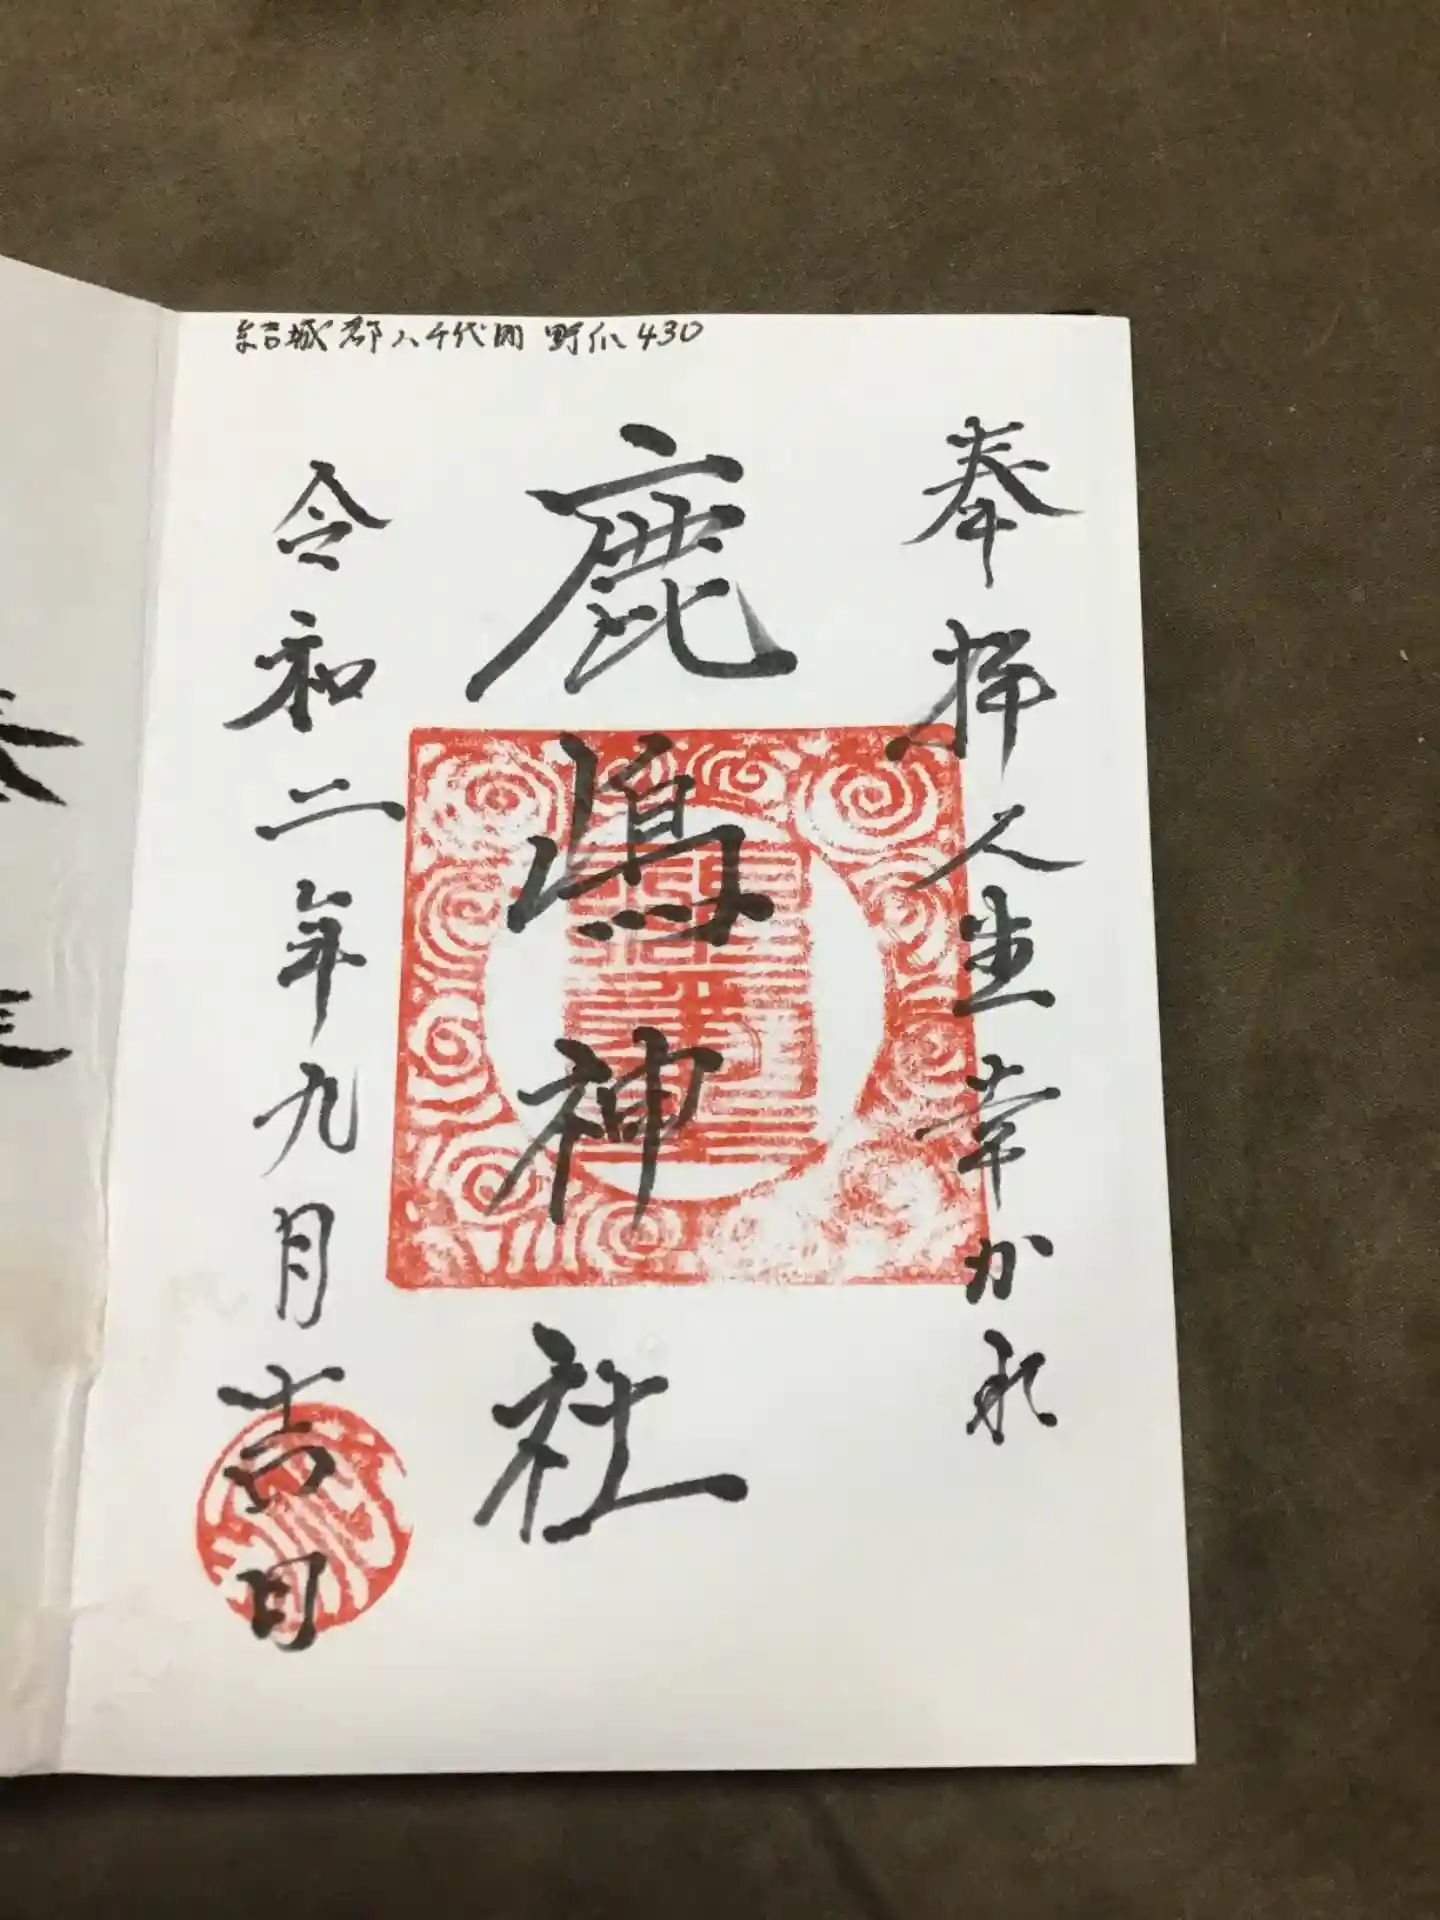 結城郡八千代町 野爪430
奉拝人生幸か永
鹿嶋神社
令和二年九月吉日